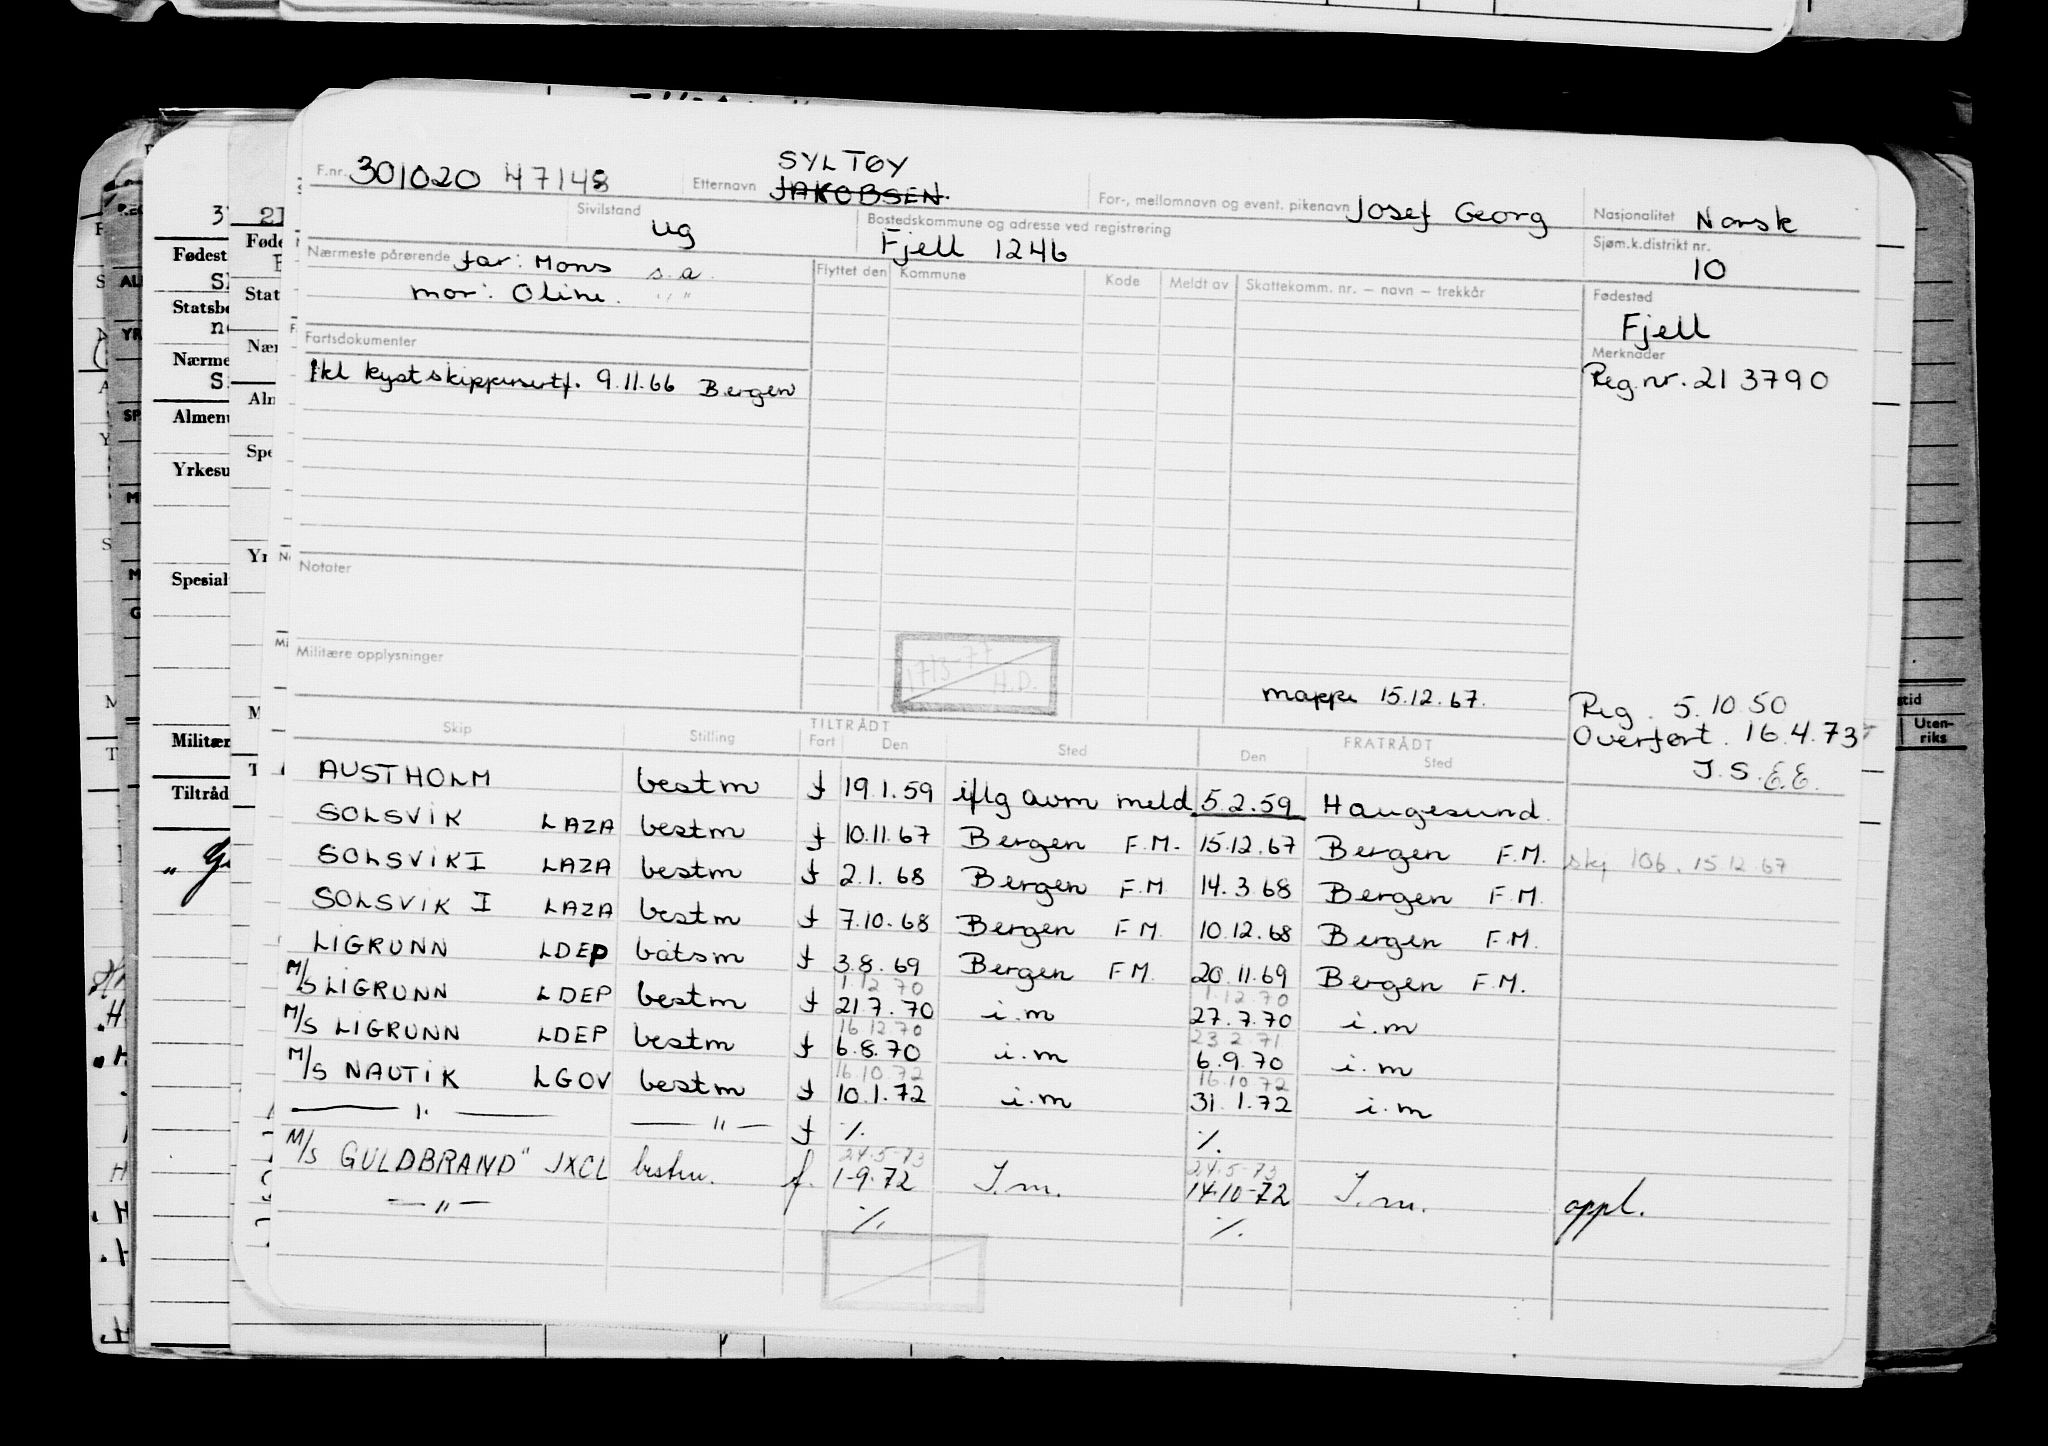 SYLTØY
F.nr. 301020 47148 Etternavn JAKOBSEN. For-, mellomnavn og event. pikenavn Josef Georg Nasjonalitet Norsk
Sivilstand ug Bostedskommune og adresse ved registrering Fjell 1246 Sjøm.k.distrikt nr. 10
Nærmeste pårørende far: Mons s.a. Flyttet den Kommune Kode Meldt av Skattekomm. nr. – navn – trekkår Fødested
mor: Oline. " "
Fjell
Fartsdokumenter Merknader
1kl kystskippersertf. 9.11.66 Bergen Reg.nr. 213790
Notater
Militære opplysninger
1713-77
H.D.
mappe 15.12.67. Reg. 5.10.50
Overført. 16.4.73
J.S. E.E.
Skip Stilling TILTRÅDT Fart Den Sted FRATRÅDT Den Sted
AUSTHOLM bestm f 19.1.59 iflg avm meld 5.2.59 Haugesund
SOLSVIK LAZA bestm f 10.11.67 Bergen F.M. 15.12.67 Bergen F.M. skj 106. 15.12.67
SOLSVIK I LAZA bestm f 2.1.68 Bergen F.M 14.3.68 Bergen F.M.
SOLSVIK I LAZA bestm f 7.10.68 Bergen F.M. 10.12.68 Bergen F.M.
LIGRUNN LDEP båtsm f 3.8.69 Bergen F.M. 20.11.69 Bergen F.M.
1.12.70 1.12.70
M/S LIGRUNN LDEP bestm f 21.7.70 i.m 27.7.70 i.m
16.12.70 23.2.71
M/S LIGRUNN LDEP bestm f 6.8.70 i.m 6.9.70 i.m
16.10.72 16.10.72
M/S NAUTIK LGOV bestm f 10.1.72 i.m 31.1.72 i.m
— " — — " — f ./. ./.
24.5-73 24.5-73
M/S GULDBRAND" JXCL bestm. f. 1-9-72 I.m. 14-10-72 I.m. oppl.
— " — ./. ./.